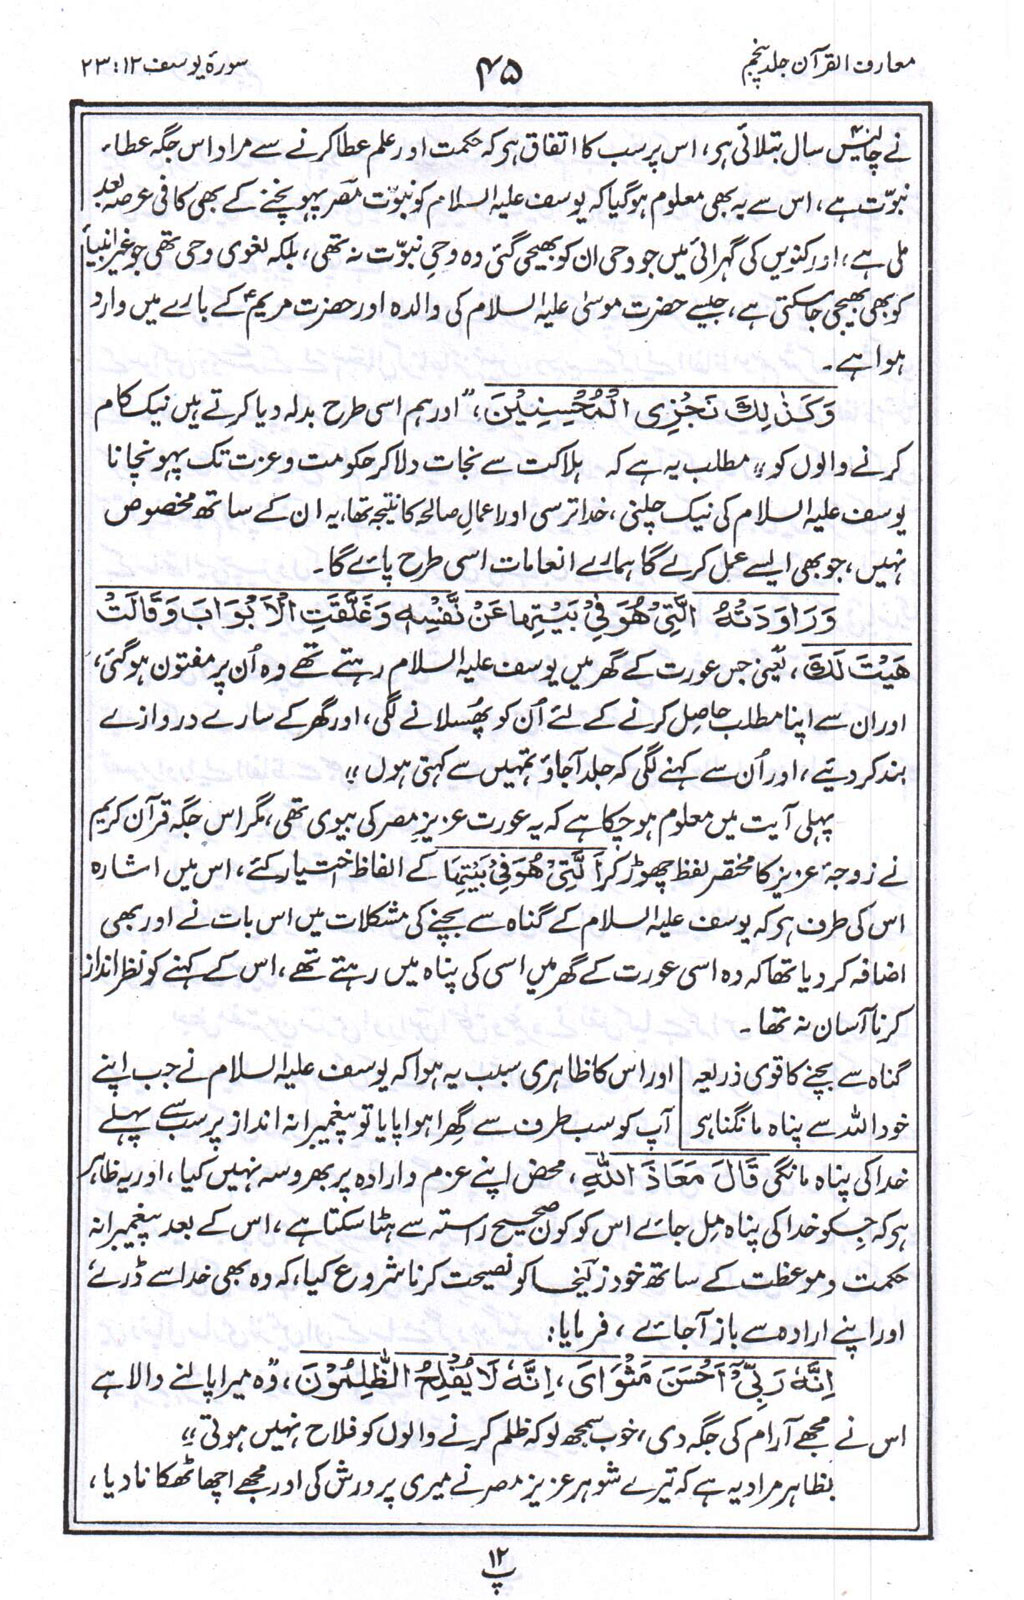 معارف القرآن جلد پنجم
۴۵
سورۂ یوسف ۱۲ : ۲۳
نے چالیس سال بتلائی ہر، اس پر سب کا اتفاق ہر کہ حکمت اور علم عطا کرنے سے مراد اس جگہ عطاء
نبوّت ہے، اس سے یہ بھی معلوم ہوگیا کہ یوسف علیہ السلام کو نبوّت مصر پہونچنے کے بھی کافی عرصہ بعد
ملی ہے، اور کنویں کی گہرائی میں جو وحی ان کو بھیجی گئی وہ وحیِ نبوّت نہ تھی، بلکہ لغوی وحی تھی جو غیر انبیاء
کو بھی بھیجی جاسکتی ہے، جیسے حضرت موسیٰ علیہ السلام کی والدہ اور حضرت مریمؑ کے بارے میں وارد
ہوا ہے۔
وَكَذٰلِكَ نَجْزِي الْمُحْسِنِيْنَ، "اور ہم اسی طرح بدلہ دیا کرتے ہیں نیک کام
کرنے والوں کو" مطلب یہ ہے کہ ہلاکت سے نجات دلا کر حکومت و عزت تک پہونچانا
یوسف علیہ السلام کی نیک چلنی، خدا ترسی اور اعمالِ صالحہ کا نتیجہ تھا، یہ ان کے ساتھ مخصوص
نہیں، جو بھی ایسے عمل کرے گا ہمارے انعامات اسی طرح پائے گا۔
وَرَاوَدَتْهُ الَّتِيْ هُوَ فِيْ بَيْتِهَا عَنْ نَّفْسِهٖ وَغَلَّقَتِ الْاَبْوَابَ وَقَالَتْ
هَيْتَ لَكَ، یعنی جس عورت کے گھر میں یوسف علیہ السلام رہتے تھے وہ اُن پر مفتون ہوگئی،
اور ان سے اپنا مطلب حاصل کرنے کے لئے اُن کو پھُسلانے لگی، اور گھر کے سارے دروازے
بند کردیئے، اور اُن سے کہنے لگی کہ جلد آجاؤ تمہیں سے کہتی ہوں"
پہلی آیت میں معلوم ہوچکا ہے کہ یہ عورت عزیزِ مصر کی بیوی تھی، مگر اس جگہ قرآن کریم
نے زوجۂ عزیز کا مختصر لفظ چھوڑ کر اَلَّتِيْ هُوَ فِيْ بَيْتِهَا کے الفاظ اختیار کئے، اس میں اشارہ
اس کی طرف ہر کہ یوسف علیہ السلام کے گناہ سے بچنے کی مشکلات میں اس بات نے اور بھی
اضافہ کردیا تھا کہ وہ اسی عورت کے گھر میں اسی کی پناہ میں رہتے تھے، اس کے کہنے کو نظر انداز
کرنا آسان نہ تھا۔
گناہ سے بچنے کا قوی ذریعہ اور اس کا ظاہری سبب یہ ہوا کہ یوسف علیہ السلام نے جب اپنے
خود اللہ سے پناہ مانگنا ہر آپ کو سب طرف سے گِھرا ہوا پایا تو پیغمبرانہ انداز پر سب سے پہلے
خدا کی پناہ مانگی قَالَ مَعَاذَ اللّٰهِ، محض اپنے عزم و ارادہ پر بھروسہ نہیں کیا، اور یہ ظاہر
ہر کہ جسکو خدا کی پناہ مِل جائے اس کو کون صحیح راستہ سے ہٹا سکتا ہے، اس کے بعد پیغمبرانہ
حکمت و موعظت کے ساتھ خود زلیخا کو نصیحت کرنا شروع کیا، کہ وہ بھی خدا سے ڈرے
اور اپنے ارادہ سے باز آجائے، فرمایا:
اِنَّهٗ رَبِّيْٓ اَحْسَنَ مَثْوَايَ، اِنَّهٗ لَا يُفْلِحُ الظّٰلِمُوْنَ، "وہ میرا پالنے والا ہے
اس نے مجھے آرام کی جگہ دی، خوب سمجھ لو کہ ظلم کرنے والوں کو فلاح نہیں ہوتی"
بظاہر مراد یہ ہے کہ تیرے شوہر عزیزِ مصر نے میری پرورش کی اور مجھے اچھا ٹھکانا دیا،
۱۲
پ